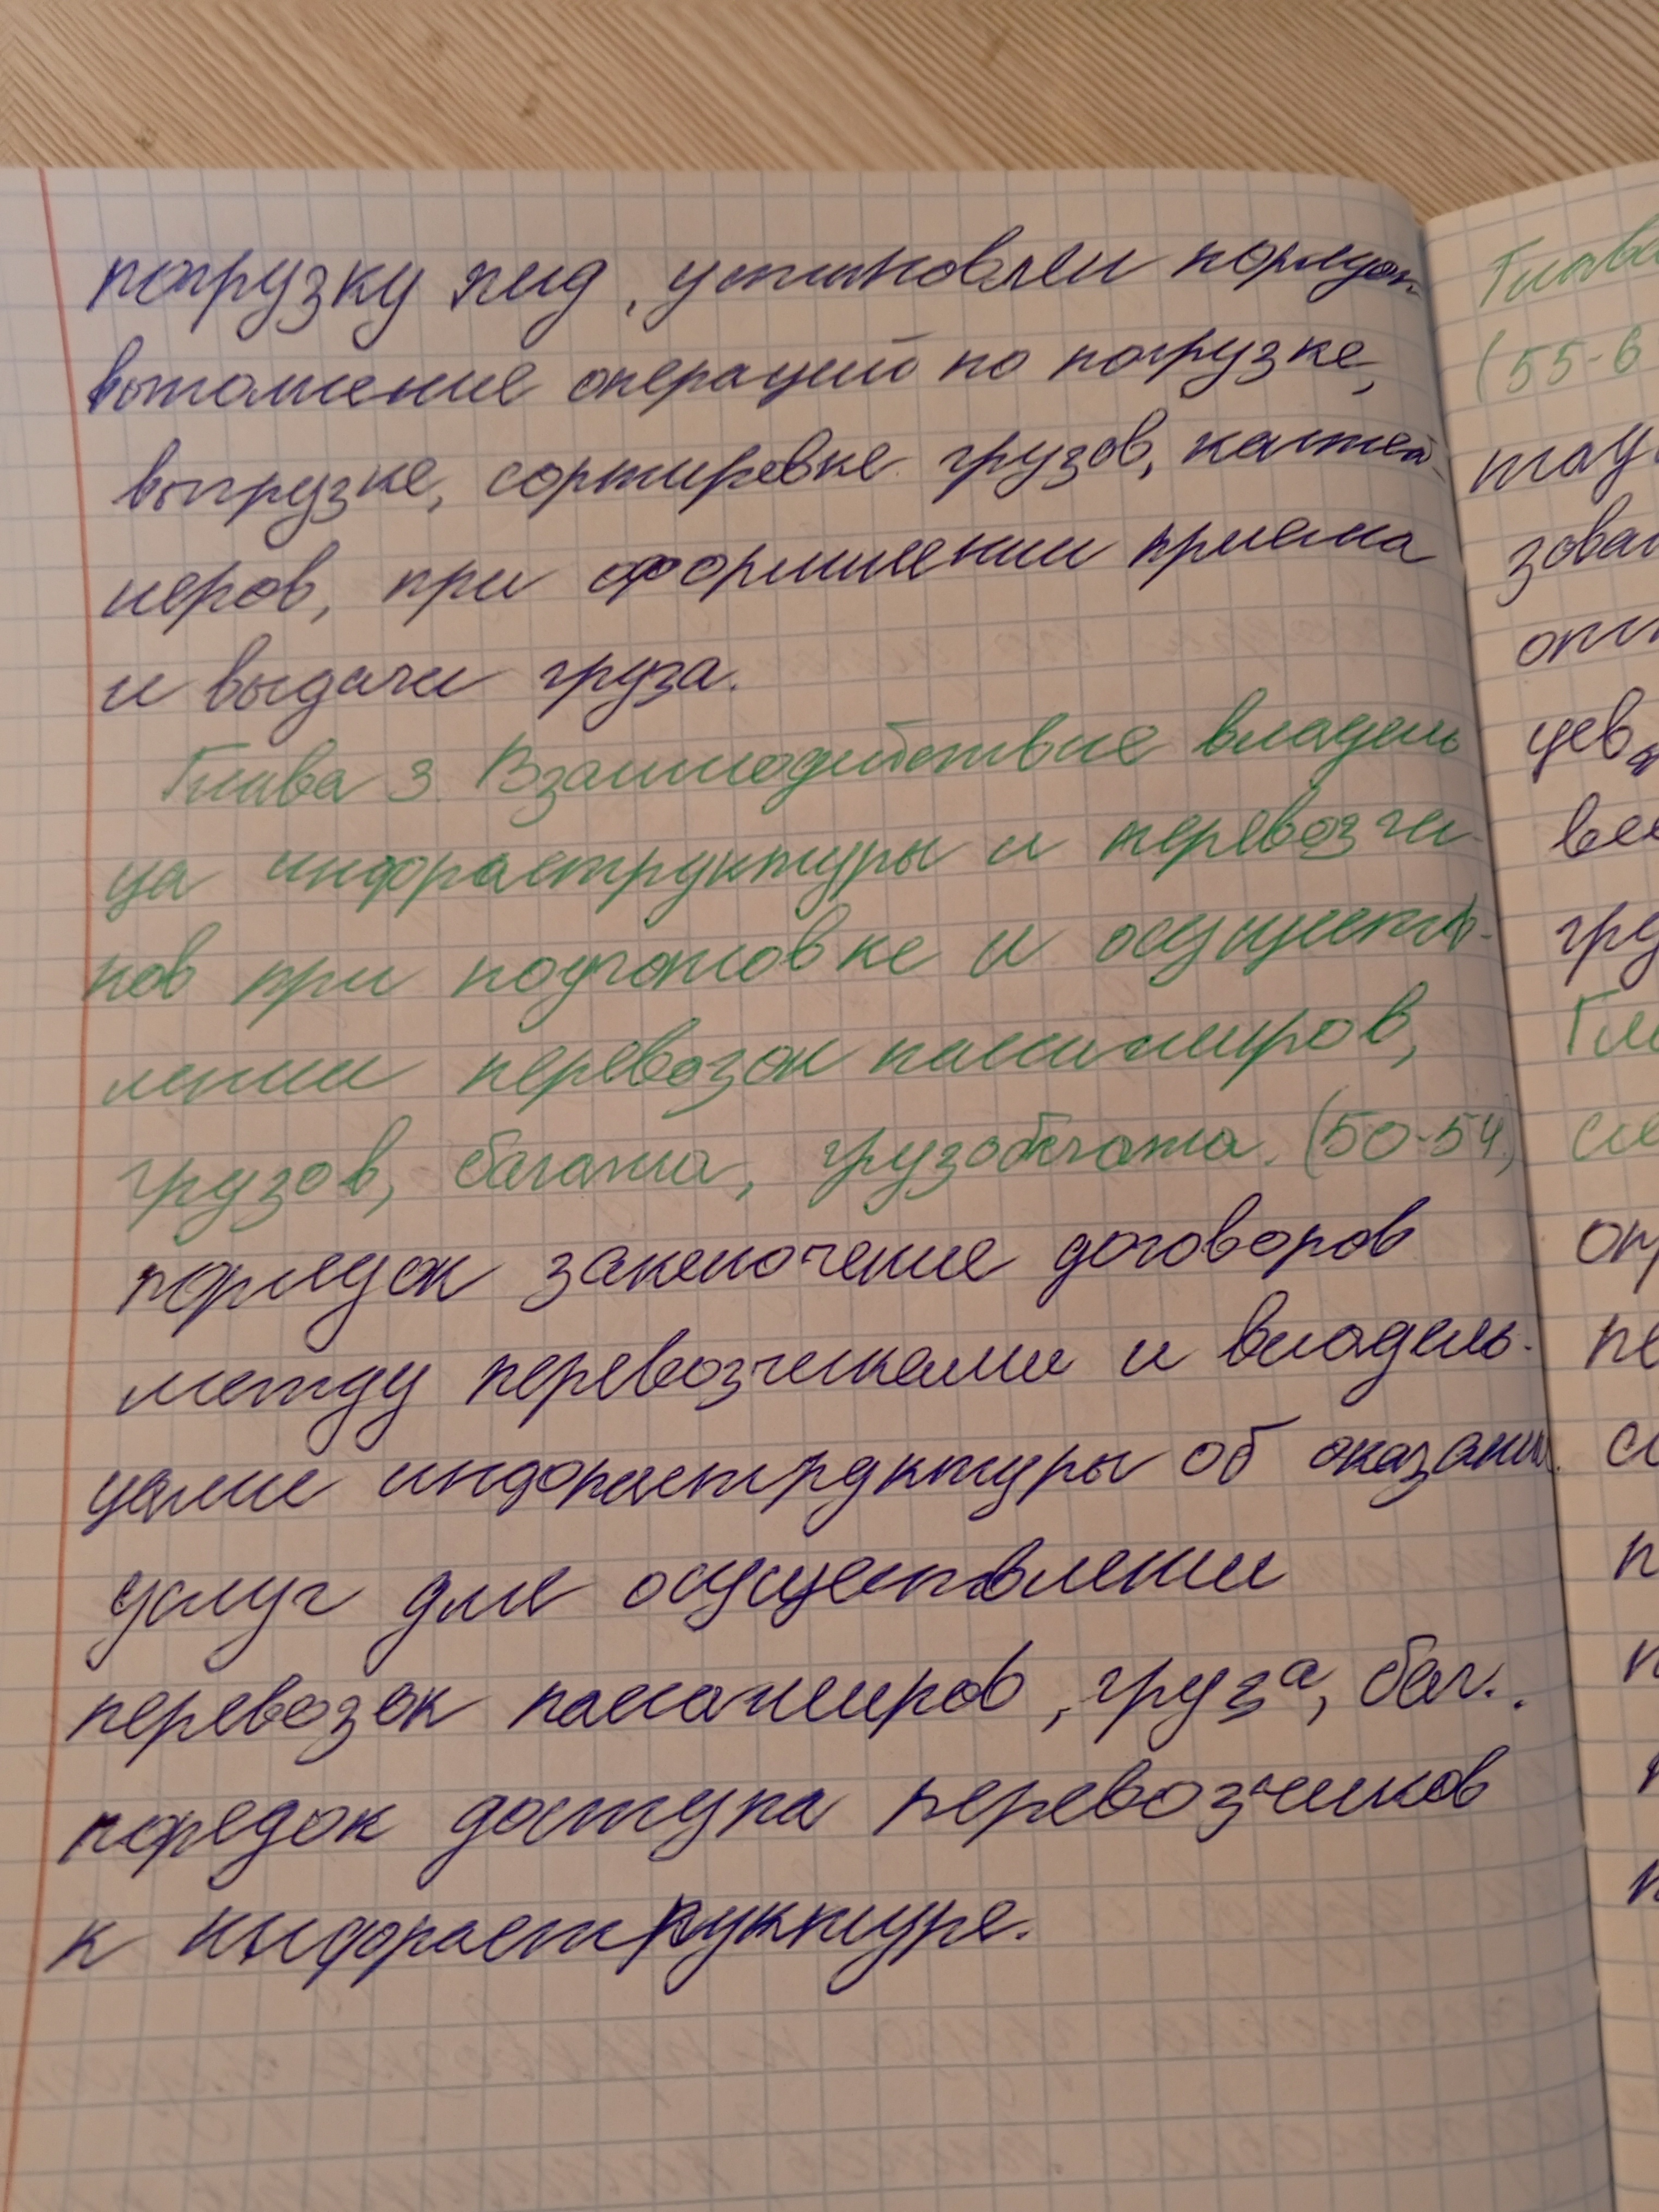 погрузку жид, установлен порядок
выполнение операций по погрузке,
выгрузке, сортировке грузов, контей-
неров, при оформлении приема
и выдачи груза.
Глава 3. Взаимодействие владель
ца инфраструктуры и перевозчи-
ков при подготовке и осуществ-
лении перевозок пассажиров,
грузов, багажа, грузобагажа. (50-54)
порядок заключение договоров
между перевозчиками и владель-
цами инфраструктуры об оказании
услуг для осуществлении
перевозок пассажиров, груза, баг..
порядок доступа перевозчиков
к инфраструктуре.
Глава
(55-6
зован
цев
Гла